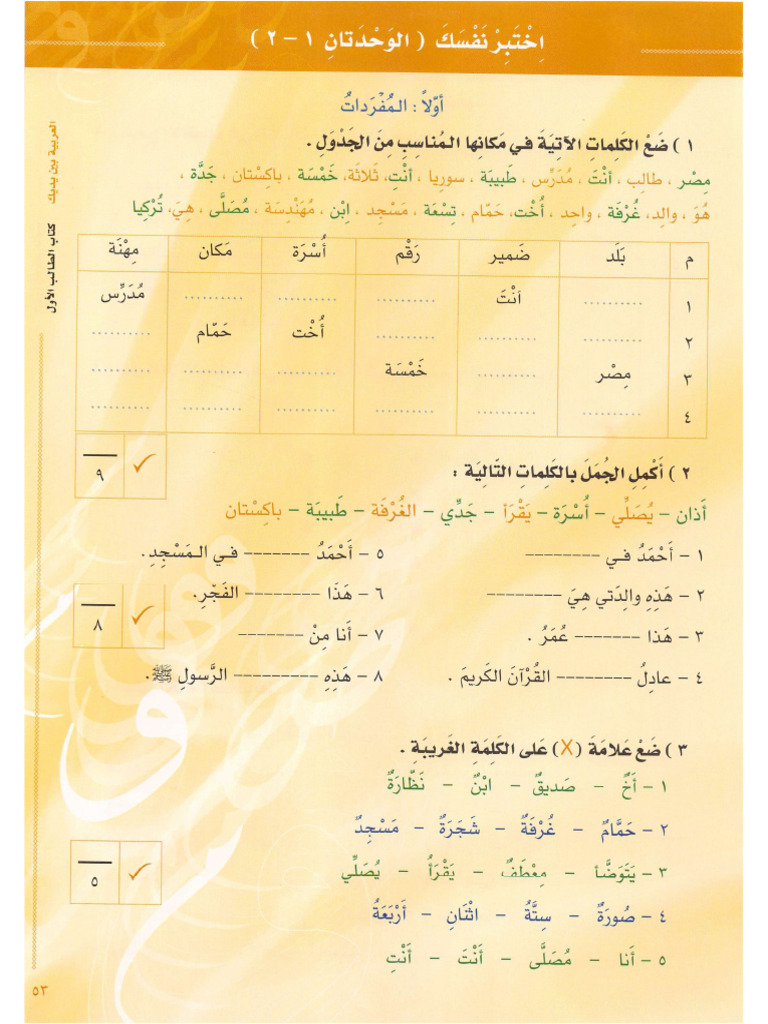 اِخْتَبِرْ نَفْسَكَ ( الوَحْدَتانِ ١ – ٢ )
أوّلاً : المُفْرَداتُ
١ ) ضَعْ الكَلِماتِ الآتِيَةَ في مَكانِها المُناسِبِ مِنَ الجَدْوَلِ .
مِصْر ، طالِب ، أنْتَ ، مُدَرِّس ، طَبِيبَة ، سوريا ، أنْتِ، ثَلاثَة، خَمْسَة ، باكِسْتان ، جَدَّة ،
هُوَ ، والِد، غُرْفَة ، واحِد ، أُخْت، حَمّام ، تِسْعَة ، مَسْجِد ، ابْن ، مُهَنْدِسَة ، مُصَلَّى ، هِيَ، تُرْكِيا
م بَلَد ضَمير رَقْم أُسْرَة مَكان مِهْنَة
١ .......... أنْتَ .......... .......... .......... مُدَرِّس
٢ .......... .......... .......... أُخْت حَمّام ..........
٣ مِصْر .......... خَمْسَة .......... .......... ..........
٤ .......... .......... .......... .......... .......... ..........
٩
٢ ) أَكْمِلِ الجُمَلَ بالكَلِماتِ التّالِيَة :
أَذان – يُصَلِّي – أُسْرَة – يَقْرَأ – جَدِّي – الغُرْفَة – طَبِيبَة – باكِسْتان
١ – أَحْمَدُ في --------
٥ – أَحْمَدُ ------- في المَسْجِدِ.
٢ – هَذِهِ والِدَتي هِيَ --------
٦ – هَذَا -------- الفَجْرِ.
٣ – هذا ------- عُمَرُ .
٧ – أَنا مِنْ -------
٤ – عادِلُ -------- القُرْآنَ الكَريمَ .
٨ – هَذِهِ --------- الرَّسولِ ﷺ .
٨
٣ ) ضَعْ عَلامَةَ (X) عَلى الكَلِمَةِ الغَريبَةِ .
١ – أَخٌ – صَديقٌ – ابْنٌ – نَظَّارَةٌ
٢ – حَمَّامٌ – غُرْفَةٌ – شَجَرَةٌ – مَسْجِدٌ
٣ – يَتَوَضَّأ – مِعْطَفٌ – يَقْرَأُ – يُصَلِّي
٤ – صُورَةٌ – سِتَّةٌ – اثْنَانِ – أَرْبَعَةٌ
٥ – أَنا – مُصَلَّى – أَنْتَ – أَنْتِ
٥
العربية بين يديك كتاب الطالب الأول
٥٣